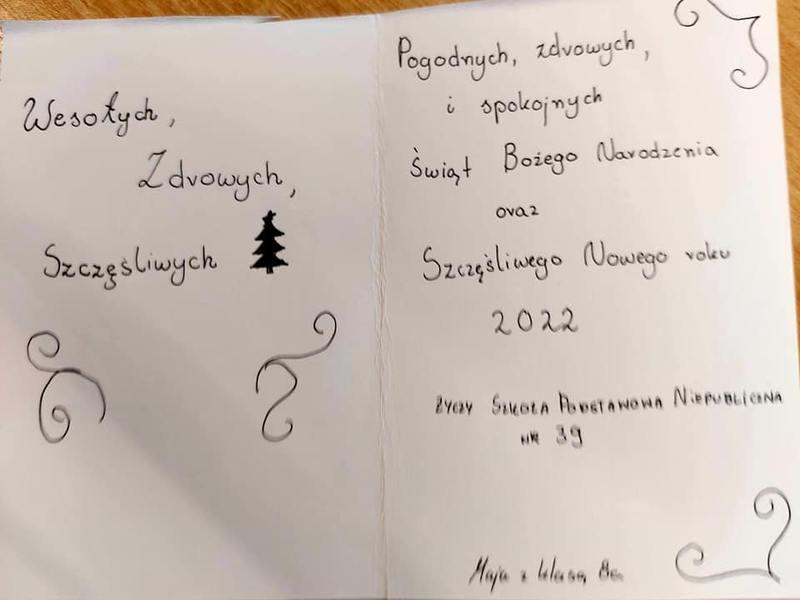 Wesołych,
Zdrowych,
Szczęśliwych
Pogodnych, zdrowych,
i spokojnych
Świąt Bożego Narodzenia
oraz
Szczęśliwego Nowego roku
2022
życzy Szkoła Podstawowa Niepubliczna
nr 39
Maja z klasą 8c